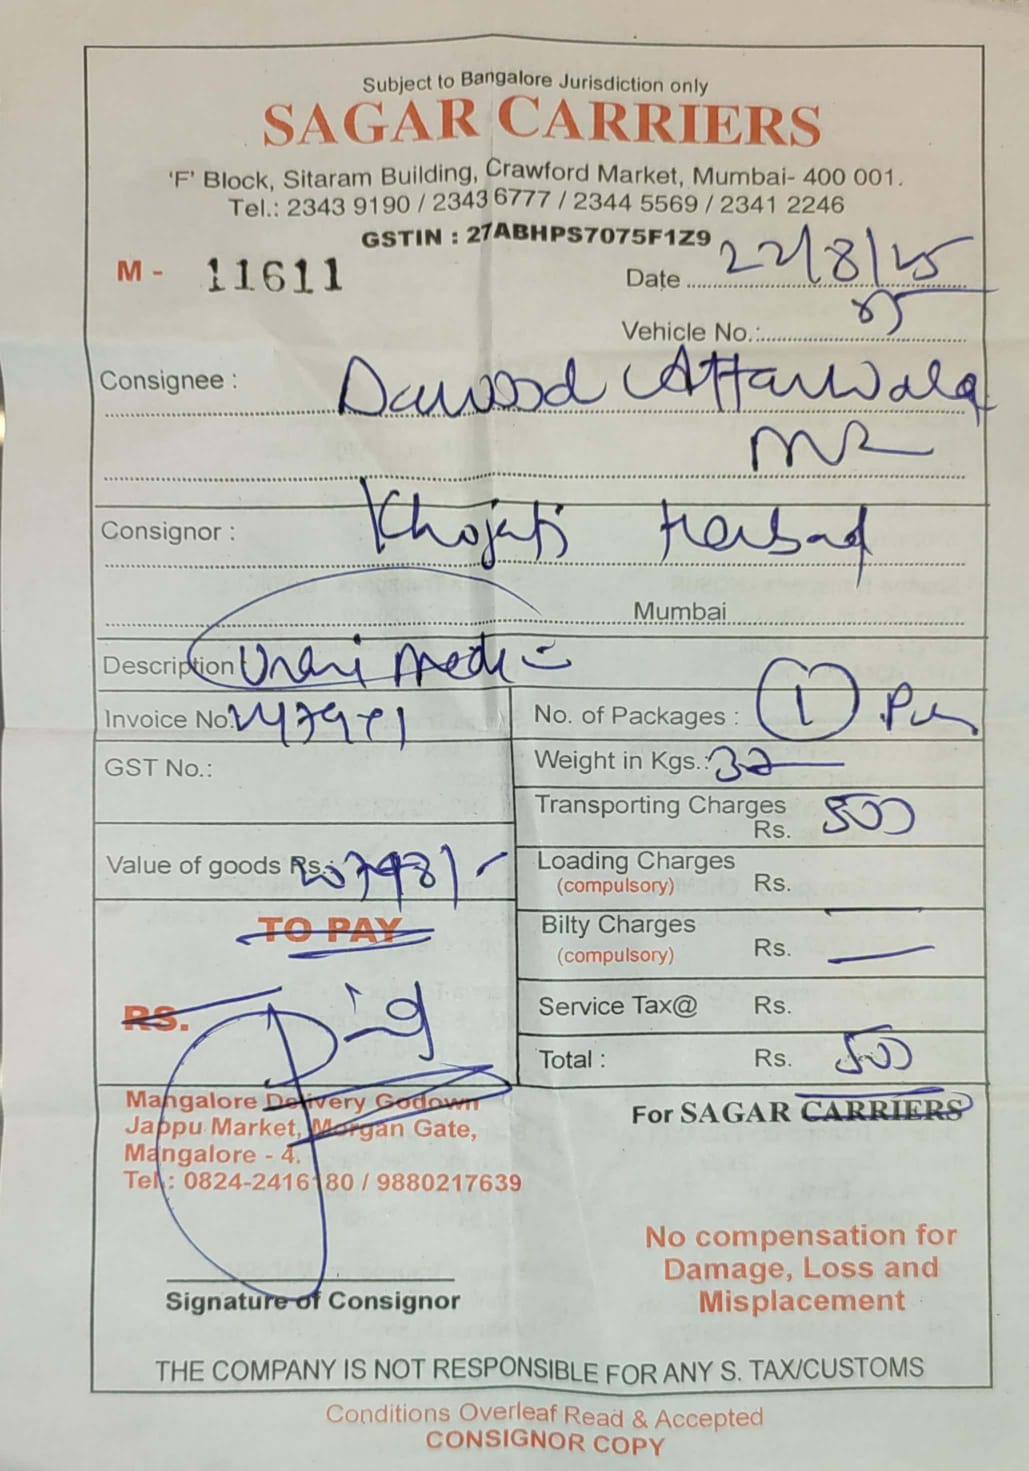 Subject to Bangalore Jurisdiction only
SAGAR CARRIERS
'F' Block, Sitaram Building, Crawford Market, Mumbai- 400 001.
Tel.: 2343 9190 / 2343 6777 / 2344 5569 / 2341 2246
GSTIN : 27ABHPS7075F1Z9
M - 11611
Date 22/8/25
Vehicle No.:
Consignee : Dawood Attarwala
Consignor : Khojati
Mumbai
Description Unani Medi
Invoice No.
No. of Packages : 1
GST No.:
Weight in Kgs.: 32
Transporting Charges
Rs. 500
Value of goods Rs.:
Loading Charges
(compulsory) Rs.
TO PAY
Bilty Charges
(compulsory) Rs. —
RS.
Service Tax@ Rs.
Total : Rs. 500
Mangalore Delivery Godown
Jappu Market, Morgan Gate,
Mangalore - 4.
Tel.: 0824-2416180 / 9880217639
For SAGAR CARRIERS
No compensation for
Damage, Loss and
Misplacement
Signature of Consignor
THE COMPANY IS NOT RESPONSIBLE FOR ANY S. TAX/CUSTOMS
Conditions Overleaf Read & Accepted
CONSIGNOR COPY